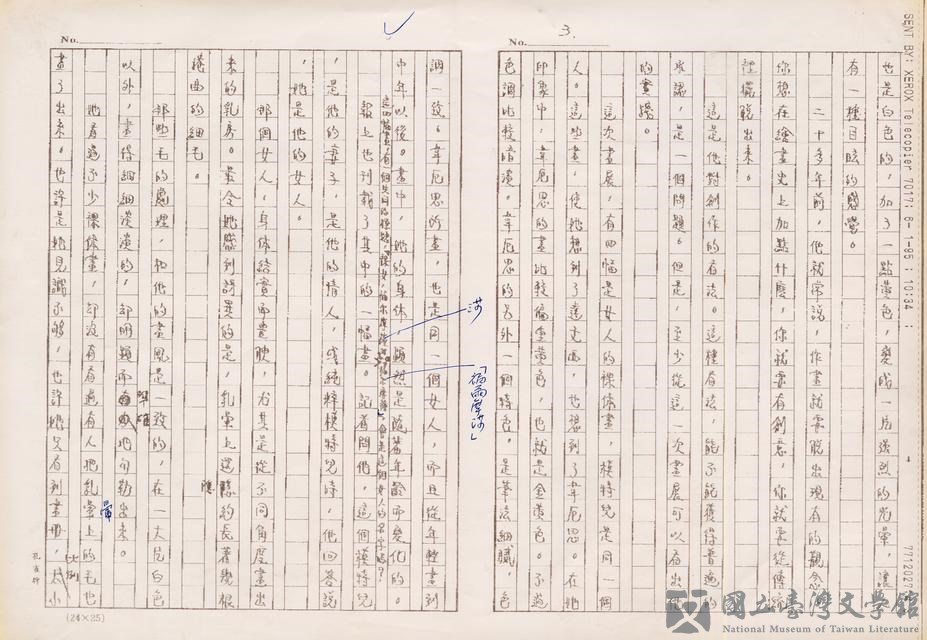 No.
3.
也是白色的，加了一點黃色，變成一片強烈的光暈，讓
有一種目眩的感覺。
二十多年前，他就常說，作畫就要脫出現有的觀念
你想在繪畫史上加點什麼，你就要有創意，你就要從傳統
裡擺脫出來。
這是他對創作的看法。這種看法，能不能獲得普遍的
承認，是一個問題。但是，至少從這一次畫展可以看出他
的實踐。
這次畫展，有四幅是女人的裸体畫，模特兒是同一個
人。這些畫，使她想到了達文西，也想到了韋厄思。在她
印象中，韋厄思的畫比較偏重黃色，也就是金黃色。不過
色調比較暗淡。韋厄思的另外一個特色，是筆法細膩，色
No.
調一致。韋厄思所畫，也是同一個女人，而且從年輕畫到
中年以後。畫中，她的身体，顯然是隨著年齡而變化的。
報上也刊載了其中的一幅畫。記者問他，這個模特兒
，是他的妻子，是他的情人，或純粹模特兒時，他回答說
，她是他的女人。
那個女人，身体結實而豐腴，尤其是從不同角度畫出
來的乳房。最令她感到訝異的是，乳暈上還隱約長著幾根
捲曲的細毛。
那些毛的處理，和他的畫風是一致的，在一大片白色
以外，畫得細細淡淡的，卻明顯而準確地勾勒出來。
她看過不少裸体畫，卻沒有看過有人把乳暈上的毛也
畫了出來。也許是她見識不夠，也許她只有到畫冊，太小
莎
「福爾摩莎」
暈
比例
(24×25)
SENT BY: XEROX Telecopier 7017; 6- 1-95 ; 10:34 ;
國立臺灣文學館
National Museum of Taiwan Literature